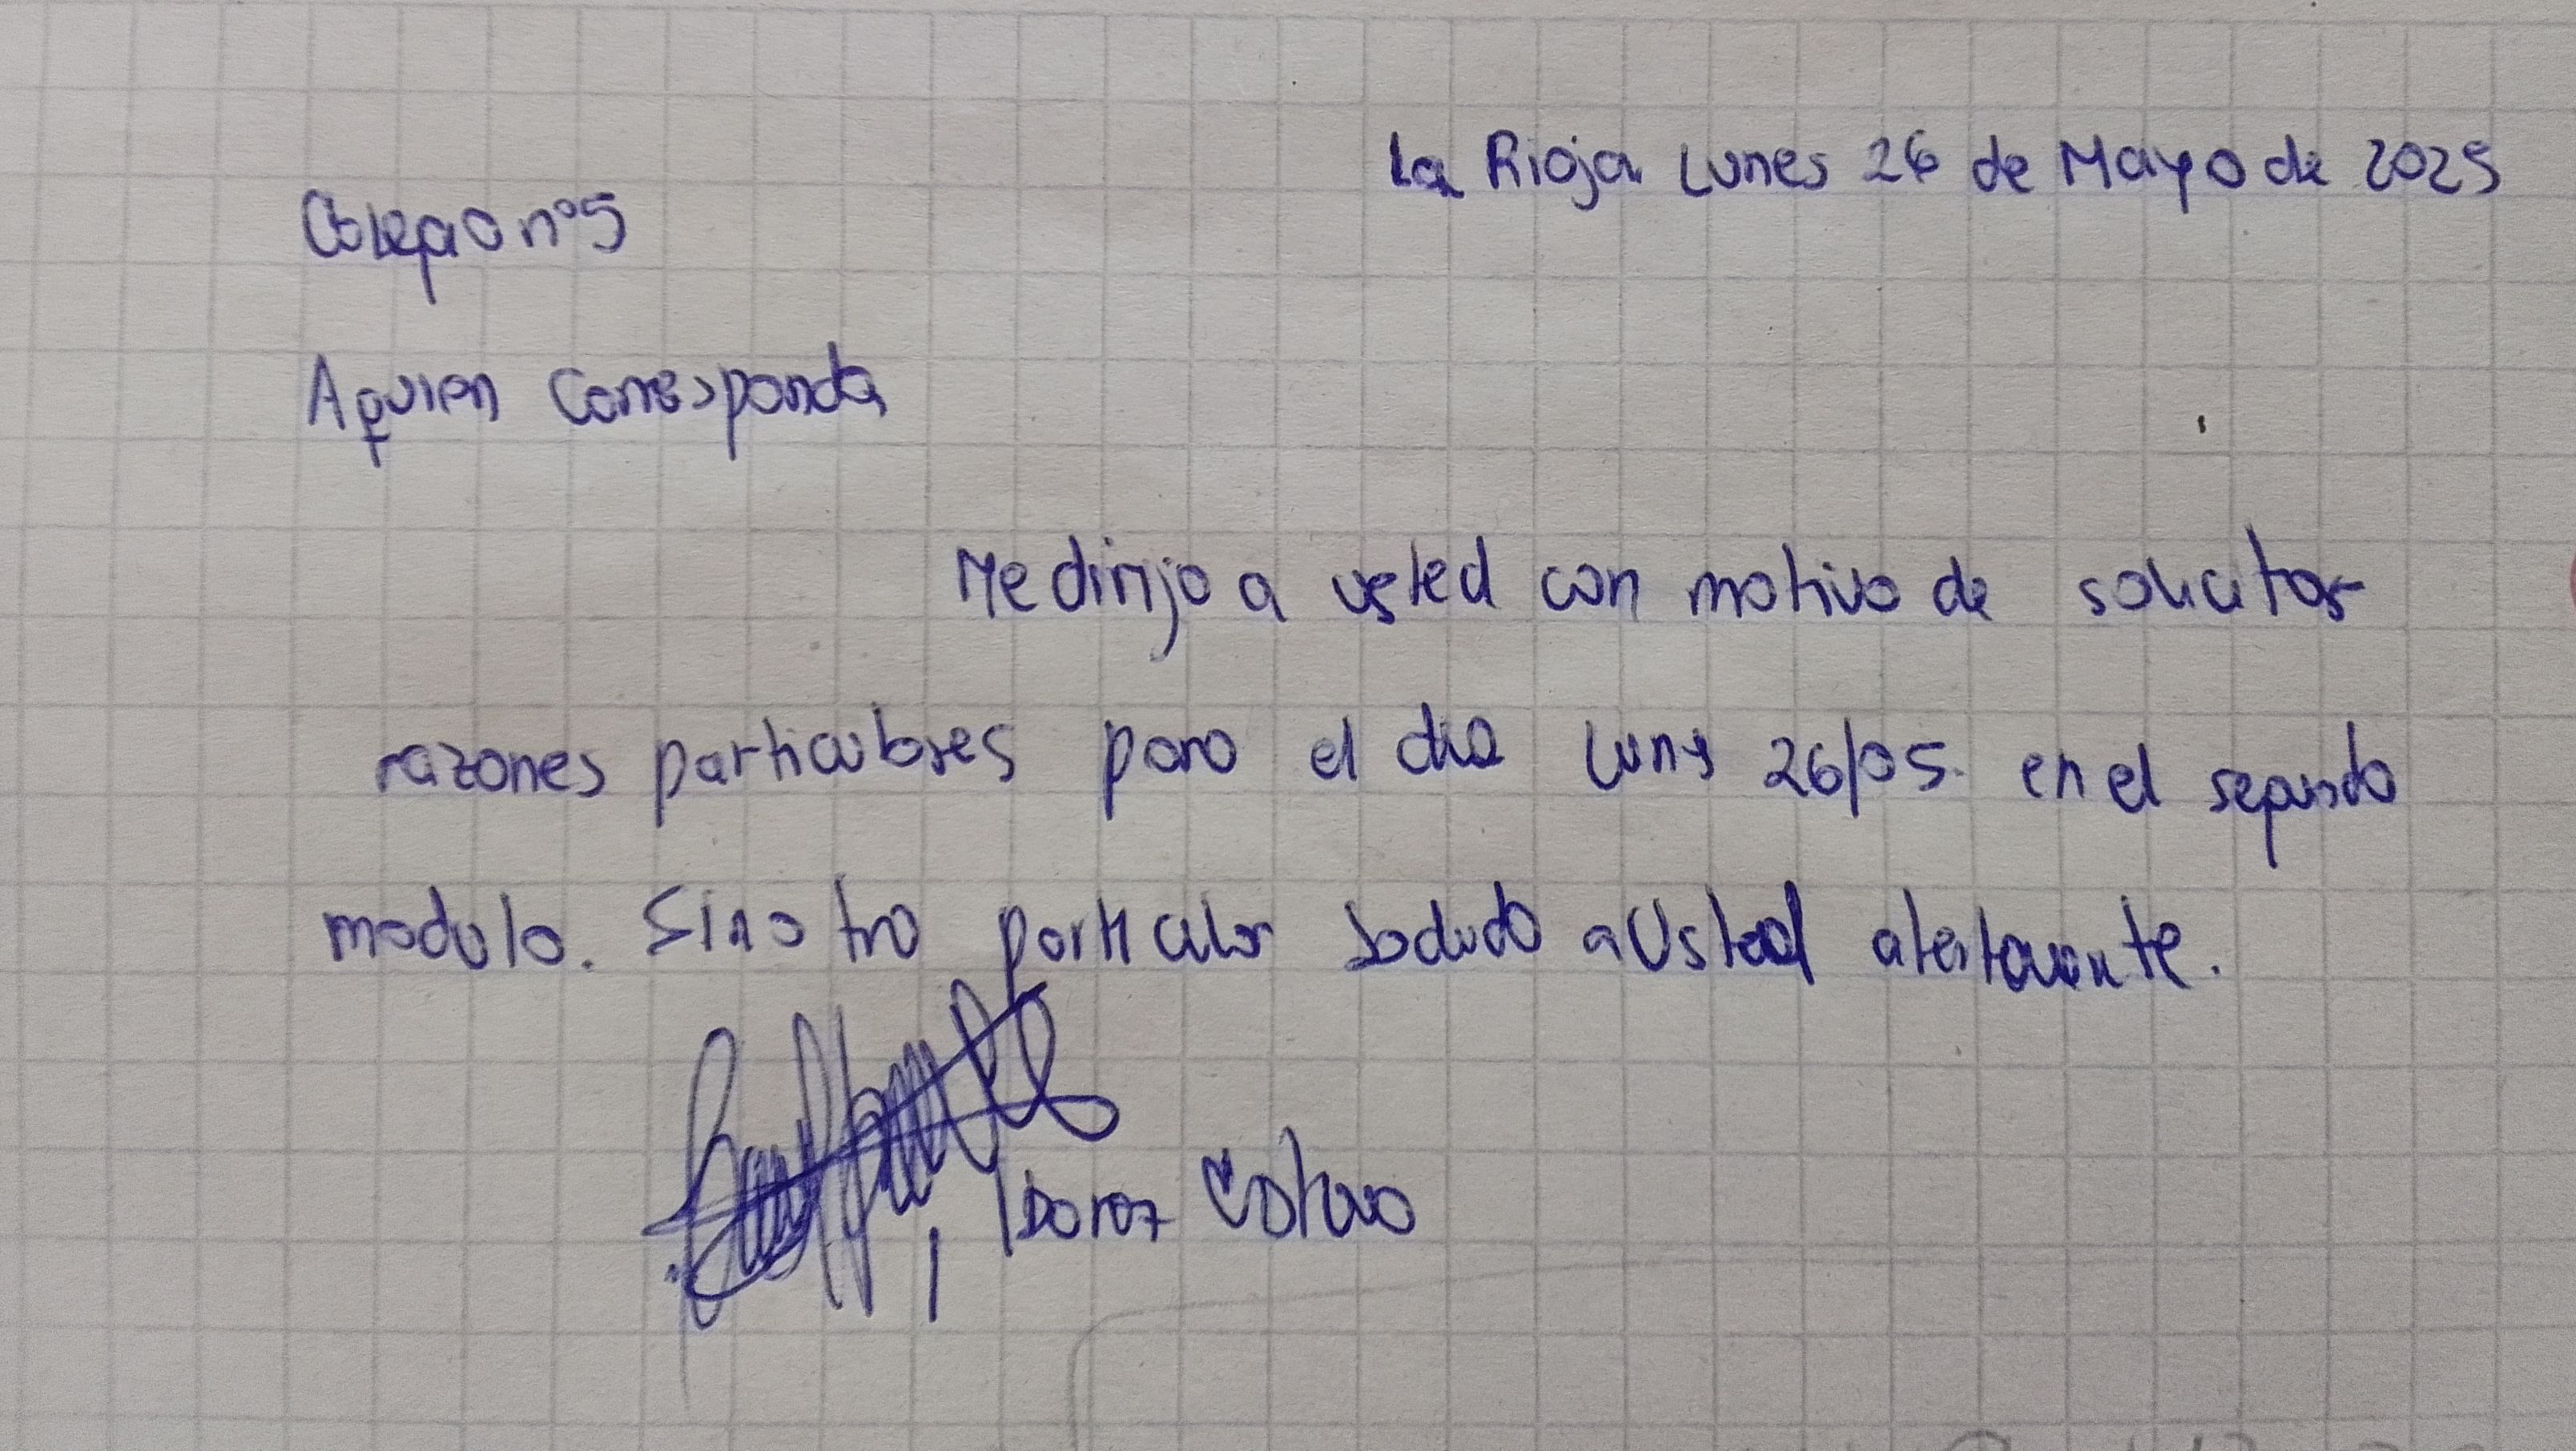 La Rioja Lunes 26 de Mayo de 2025
Colegio n°5
A quien corresponda
Me dirijo a usted con motivo de solicitar
razones particulares para el dia lunes 26/05. en el segundo
modulo. Sin otro particular saludo a Usted atentamente.